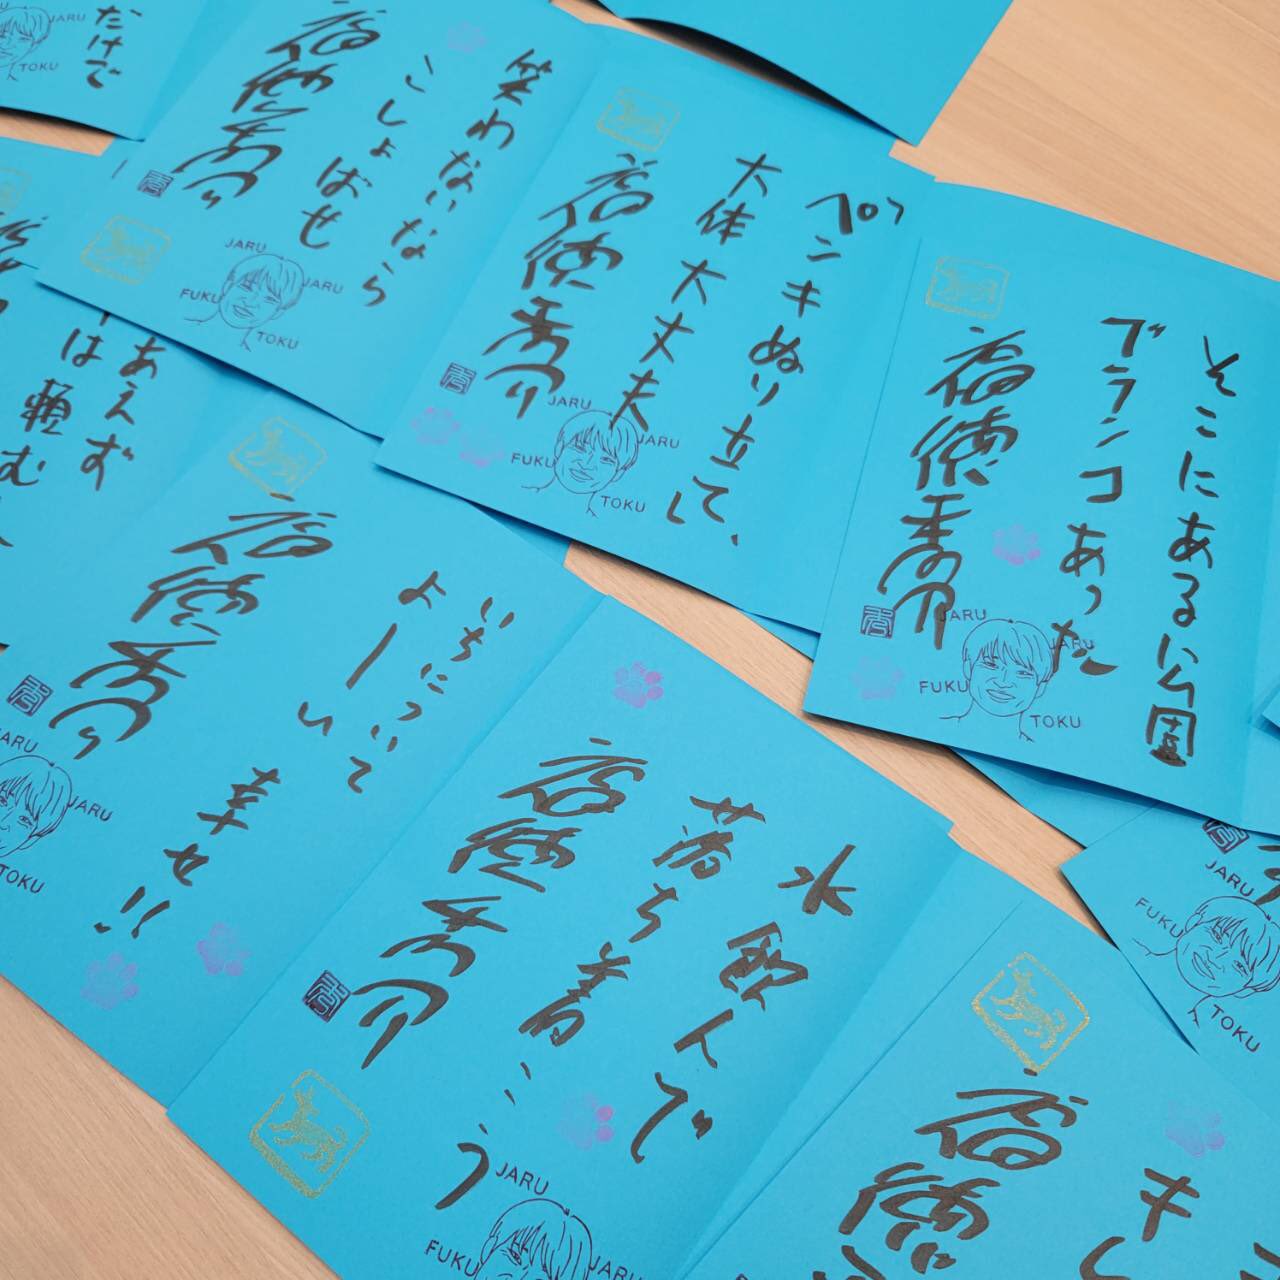 だけで
JARU
TOKU
笑わないなら
こしょばせ
福徳秀介
JARU
JARU
FUKU
TOKU
ペンキぬり立て、
大体大丈夫
福徳秀介
JARU
JARU
FUKU
TOKU
そこにある公園
ブランコあった
福徳秀介
JARU
JARU
FUKU
TOKU
あえず
は頼む
いちについて
よーい
幸せ!!
福徳秀介
JARU
JARU
TOKU
水飲んで
落ち着こう
福徳秀介
JARU
JARU
FUKU
JARU
FUKU
TOKU
福徳